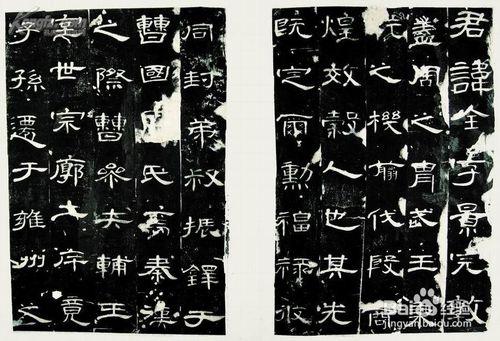 君諱全字景完敦
蓋周之胄武王
乾之機翦伐殷商
煌效穀人也其先
既定爾勳福祿攸
同封弟叔振鐸于
曹國因氏焉秦漢
之際曹參夾輔王
室世宗廓土斥竟
子孫遷于雍州之
Baidu经验
jingyan.baidu.com